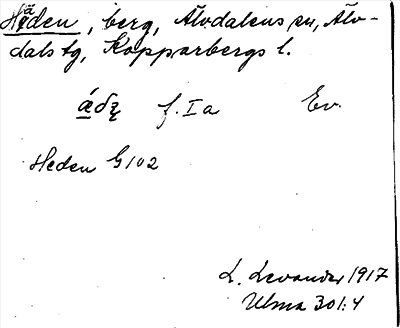 Heden, berg, Älvdalens sn, Älv-
dals tg, Kopparbergs l.
f. I a Ev.
Heden G 102
L. Levander 1917
Ulma 301:4